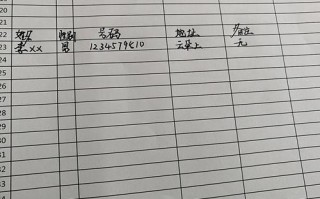 21
22 姓名 性别 号码 地址 备注
23 李×× 男 1234579810 云朵上 无
24
25
26
27
28
29
30
31
32
33
34